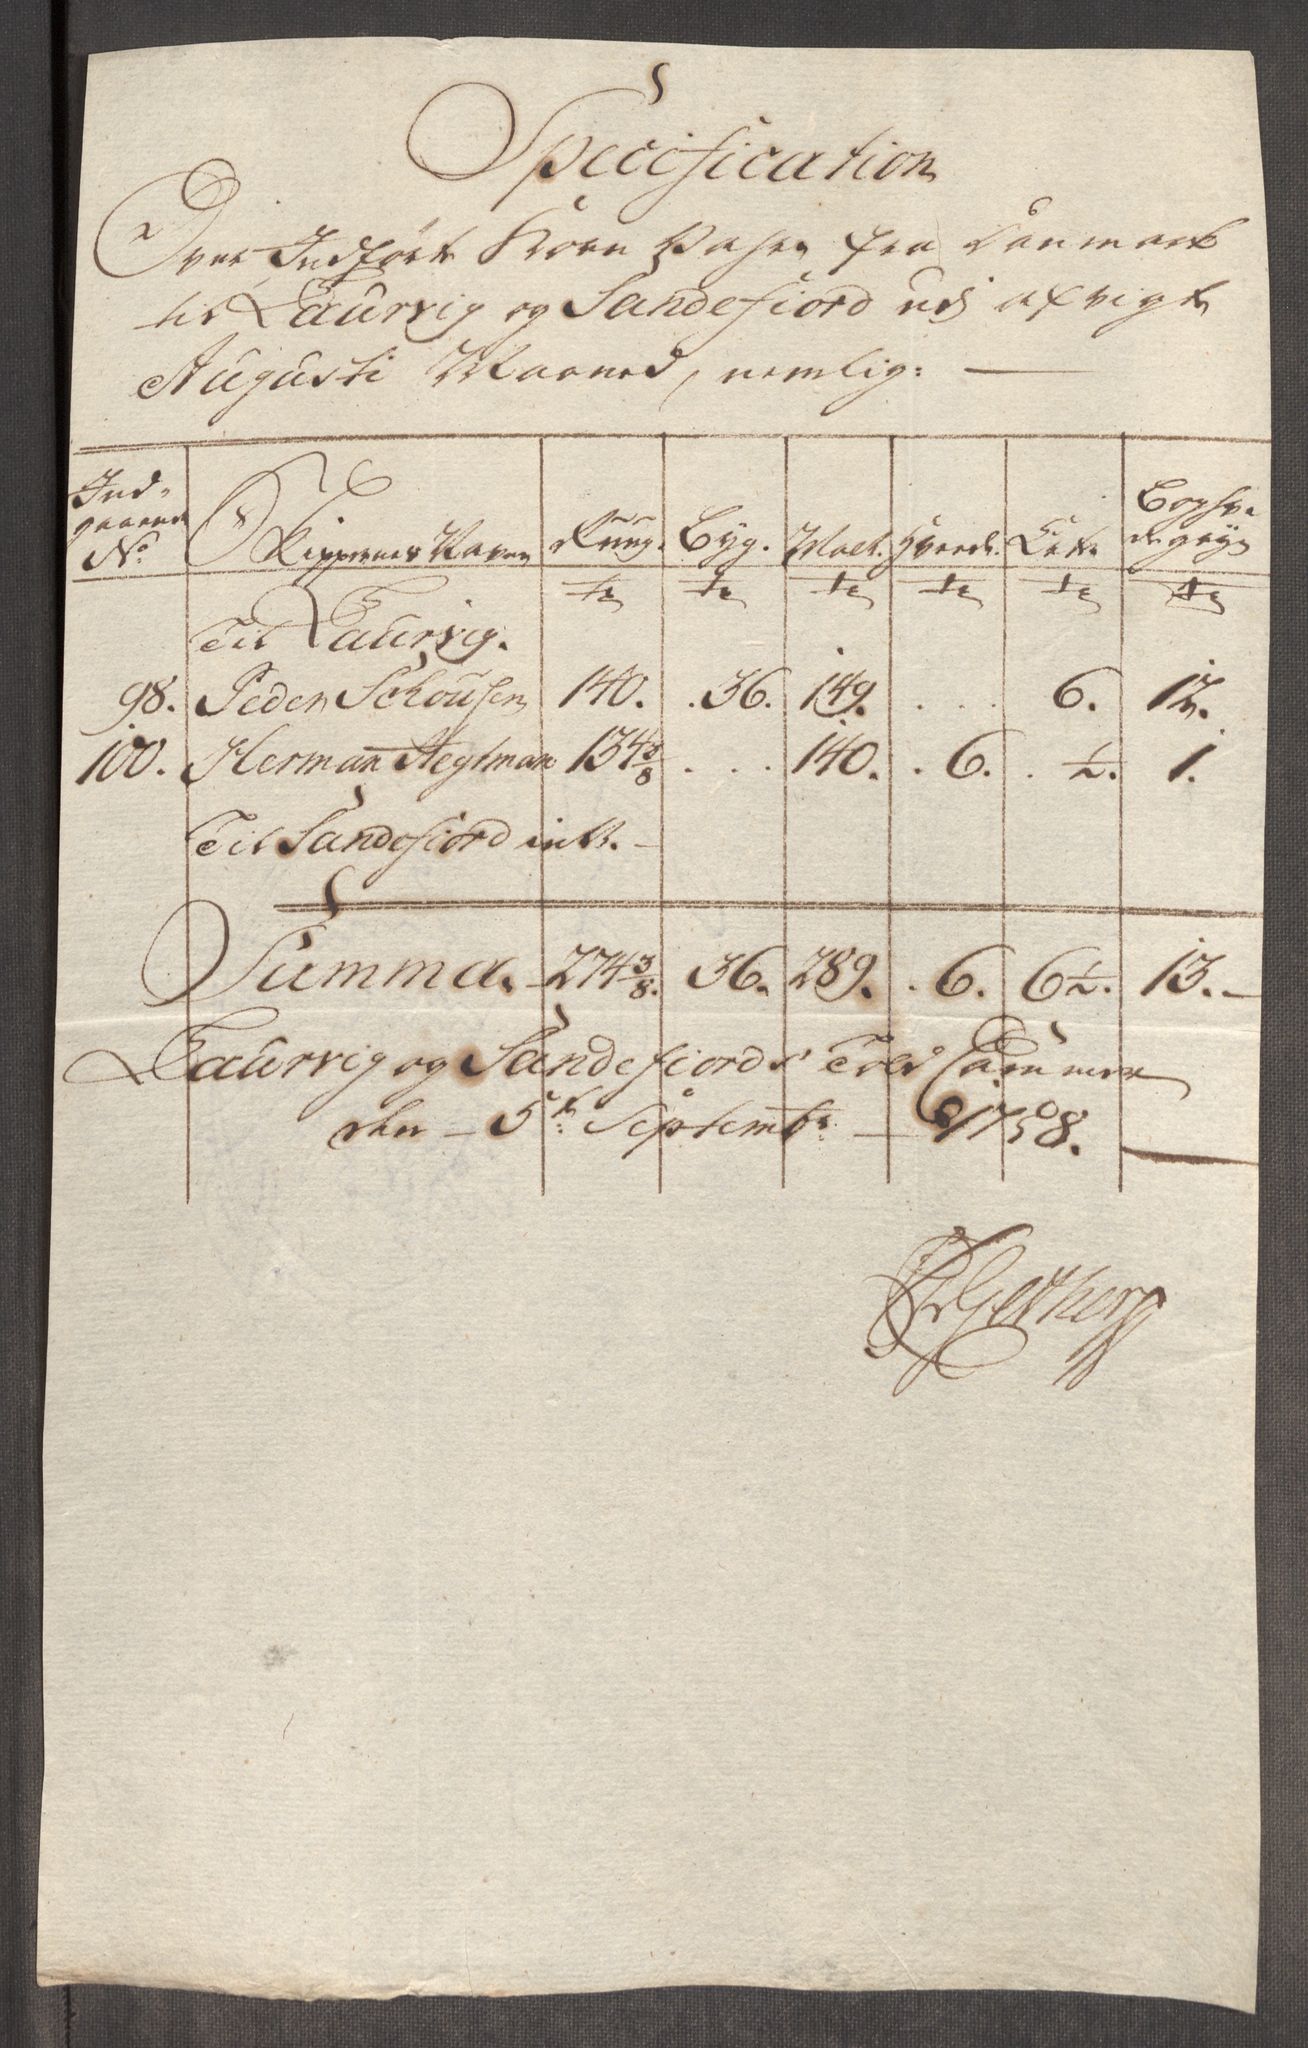 Specification
Over Indført Korn Vahre fra Danmark
til Laurvig og Sandefiord udi afvigte
Augusti Maaned, nemlig:
Ind-
gaaende
No Skippernes Navne Rug. Byg. Malt. Hvede. Erter Boghve-
de gryn
Tr Tr Tr Tr Tr Tr
Til Laurvig.
98. Peder Schousen 140. 36. 149. 6. 12.
100. Herman 134 3/8 140. 6. 1/2. 1.
Til Sandefiord intet.
Summa. 274 3/8. 36. 289. 6. 6 1/2. 13.
Laurvig og Sandefiords Told Cammer
den 5t: Septembr: 1758.